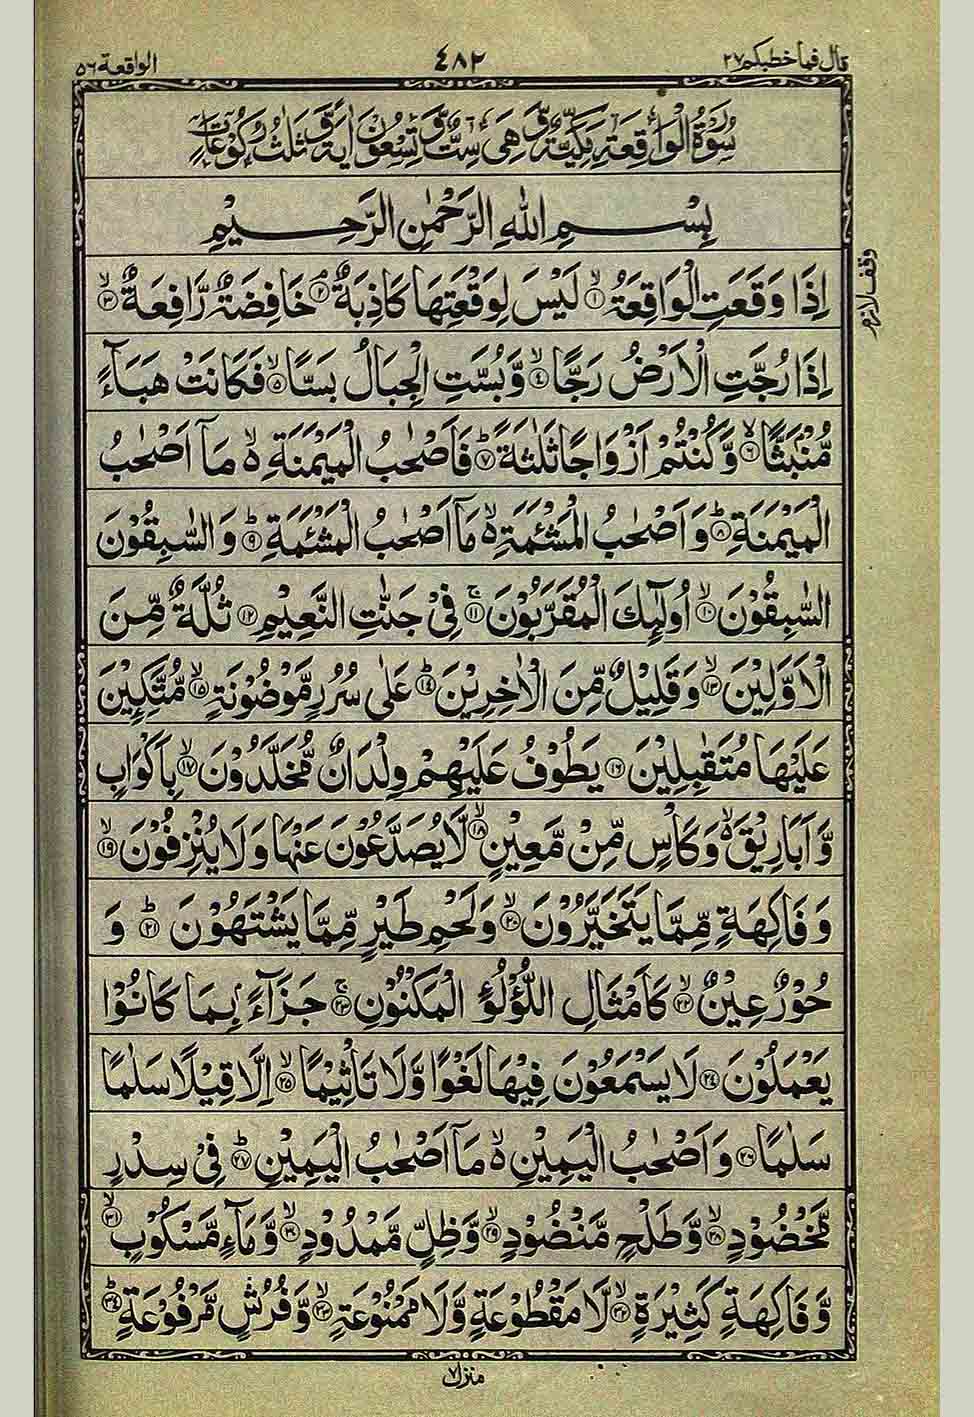 قال فما خطبكم ٢٧ ٤٨٢ الواقعة ٥٦
سُوْرَةُ الْوَاقِعَةِ مَكِّيَّةٌ وَّهِىَ سِتٌّ وَّتِسْعُوْنَ اٰيَةً وَّثَلٰثُ رُكُوْعَاتٍ
بِسْمِ اللّٰهِ الرَّحْمٰنِ الرَّحِيْمِ
اِذَا وَقَعَتِ الْوَاقِعَةُ ۙ﴿۱﴾ لَيْسَ لِوَقْعَتِهَا كَاذِبَةٌ ۘ﴿۲﴾ خَافِضَةٌ رَّافِعَةٌ ۙ﴿۳﴾
وقف لازم
اِذَا رُجَّتِ الْاَرْضُ رَجًّا ۙ﴿۴﴾ وَّبُسَّتِ الْجِبَالُ بَسًّا ۙ﴿۵﴾ فَكَانَتْ هَبَآءً
مُّنْۢبَثًّا ۙ﴿۶﴾ وَّكُنْتُمْ اَزْوَاجًا ثَلٰثَةً ؕ﴿۷﴾ فَاَصْحٰبُ الْمَيْمَنَةِ ۙ۬ مَاۤ اَصْحٰبُ
الْمَيْمَنَةِ ؕ﴿۸﴾ وَاَصْحٰبُ الْمَشْـَٔمَةِ ۙ۬ مَاۤ اَصْحٰبُ الْمَشْـَٔمَةِ ؕ﴿۹﴾ وَالسّٰبِقُوْنَ
السّٰبِقُوْنَ ۙ﴿۱۰﴾ اُولٰٓئِكَ الْمُقَرَّبُوْنَ ۚ﴿۱۱﴾ فِىْ جَنّٰتِ النَّعِيْمِ ﴿۱۲﴾ ثُلَّةٌ مِّنَ
الْاَوَّلِيْنَ ۙ﴿۱۳﴾ وَقَلِيْلٌ مِّنَ الْاٰخِرِيْنَ ؕ﴿۱۴﴾ عَلٰى سُرُرٍ مَّوْضُوْنَةٍ ۙ﴿۱۵﴾ مُّتَّكِـِٕيْنَ
عَلَيْهَا مُتَقٰبِلِيْنَ ﴿۱۶﴾ يَطُوْفُ عَلَيْهِمْ وِلْدَانٌ مُّخَلَّدُوْنَ ۙ﴿۱۷﴾ بِاَكْوَابٍ
وَّاَبَارِيْقَ ۙ۬ وَكَاْسٍ مِّنْ مَّعِيْنٍ ۙ﴿۱۸﴾ لَّا يُصَدَّعُوْنَ عَنْهَا وَلَا يُنْزِفُوْنَ ۙ﴿۱۹﴾
وَفَاكِهَةٍ مِّمَّا يَتَخَيَّرُوْنَ ۙ﴿۲۰﴾ وَلَحْمِ طَيْرٍ مِّمَّا يَشْتَهُوْنَ ؕ﴿۲۱﴾ وَ
حُوْرٌ عِيْنٌ ۙ﴿۲۲﴾ كَاَمْثَالِ اللُّؤْلُؤِ الْمَكْنُوْنِ ۚ﴿۲۳﴾ جَزَآءًۢ بِمَا كَانُوْا
يَعْمَلُوْنَ ﴿۲۴﴾ لَا يَسْمَعُوْنَ فِيْهَا لَغْوًا وَّلَا تَاْثِيْمًا ۙ﴿۲۵﴾ اِلَّا قِيْلًا سَلٰمًا
سَلٰمًا ﴿۲۶﴾ وَاَصْحٰبُ الْيَمِيْنِ ۙ۬ مَاۤ اَصْحٰبُ الْيَمِيْنِ ؕ﴿۲۷﴾ فِىْ سِدْرٍ
مَّخْضُوْدٍ ۙ﴿۲۸﴾ وَّطَلْحٍ مَّنْضُوْدٍ ۙ﴿۲۹﴾ وَّظِلٍّ مَّمْدُوْدٍ ۙ﴿۳۰﴾ وَّمَآءٍ مَّسْكُوْبٍ ۙ﴿۳۱﴾
وَّفَاكِهَةٍ كَثِيْرَةٍ ۙ﴿۳۲﴾ لَّا مَقْطُوْعَةٍ وَّلَا مَمْنُوْعَةٍ ۙ﴿۳۳﴾ وَّفُرُشٍ مَّرْفُوْعَةٍ ؕ﴿۳۴﴾
منزل ٧